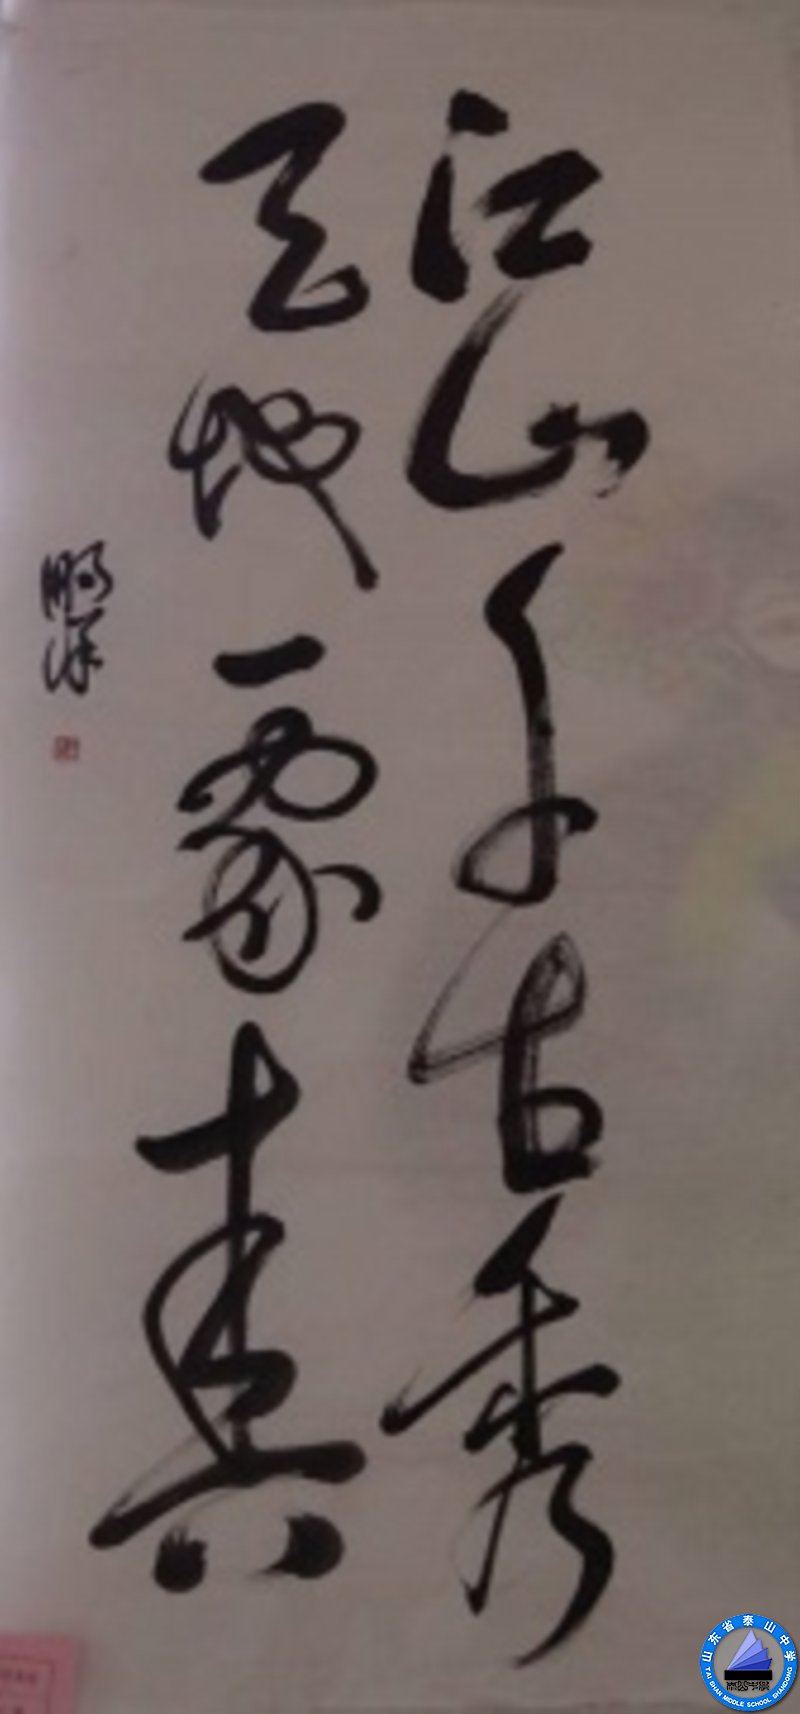 江山千古秀
天地一家真
山东省泰山中学
TAI SHAN MIDDLE SCHOOL SHANDONG